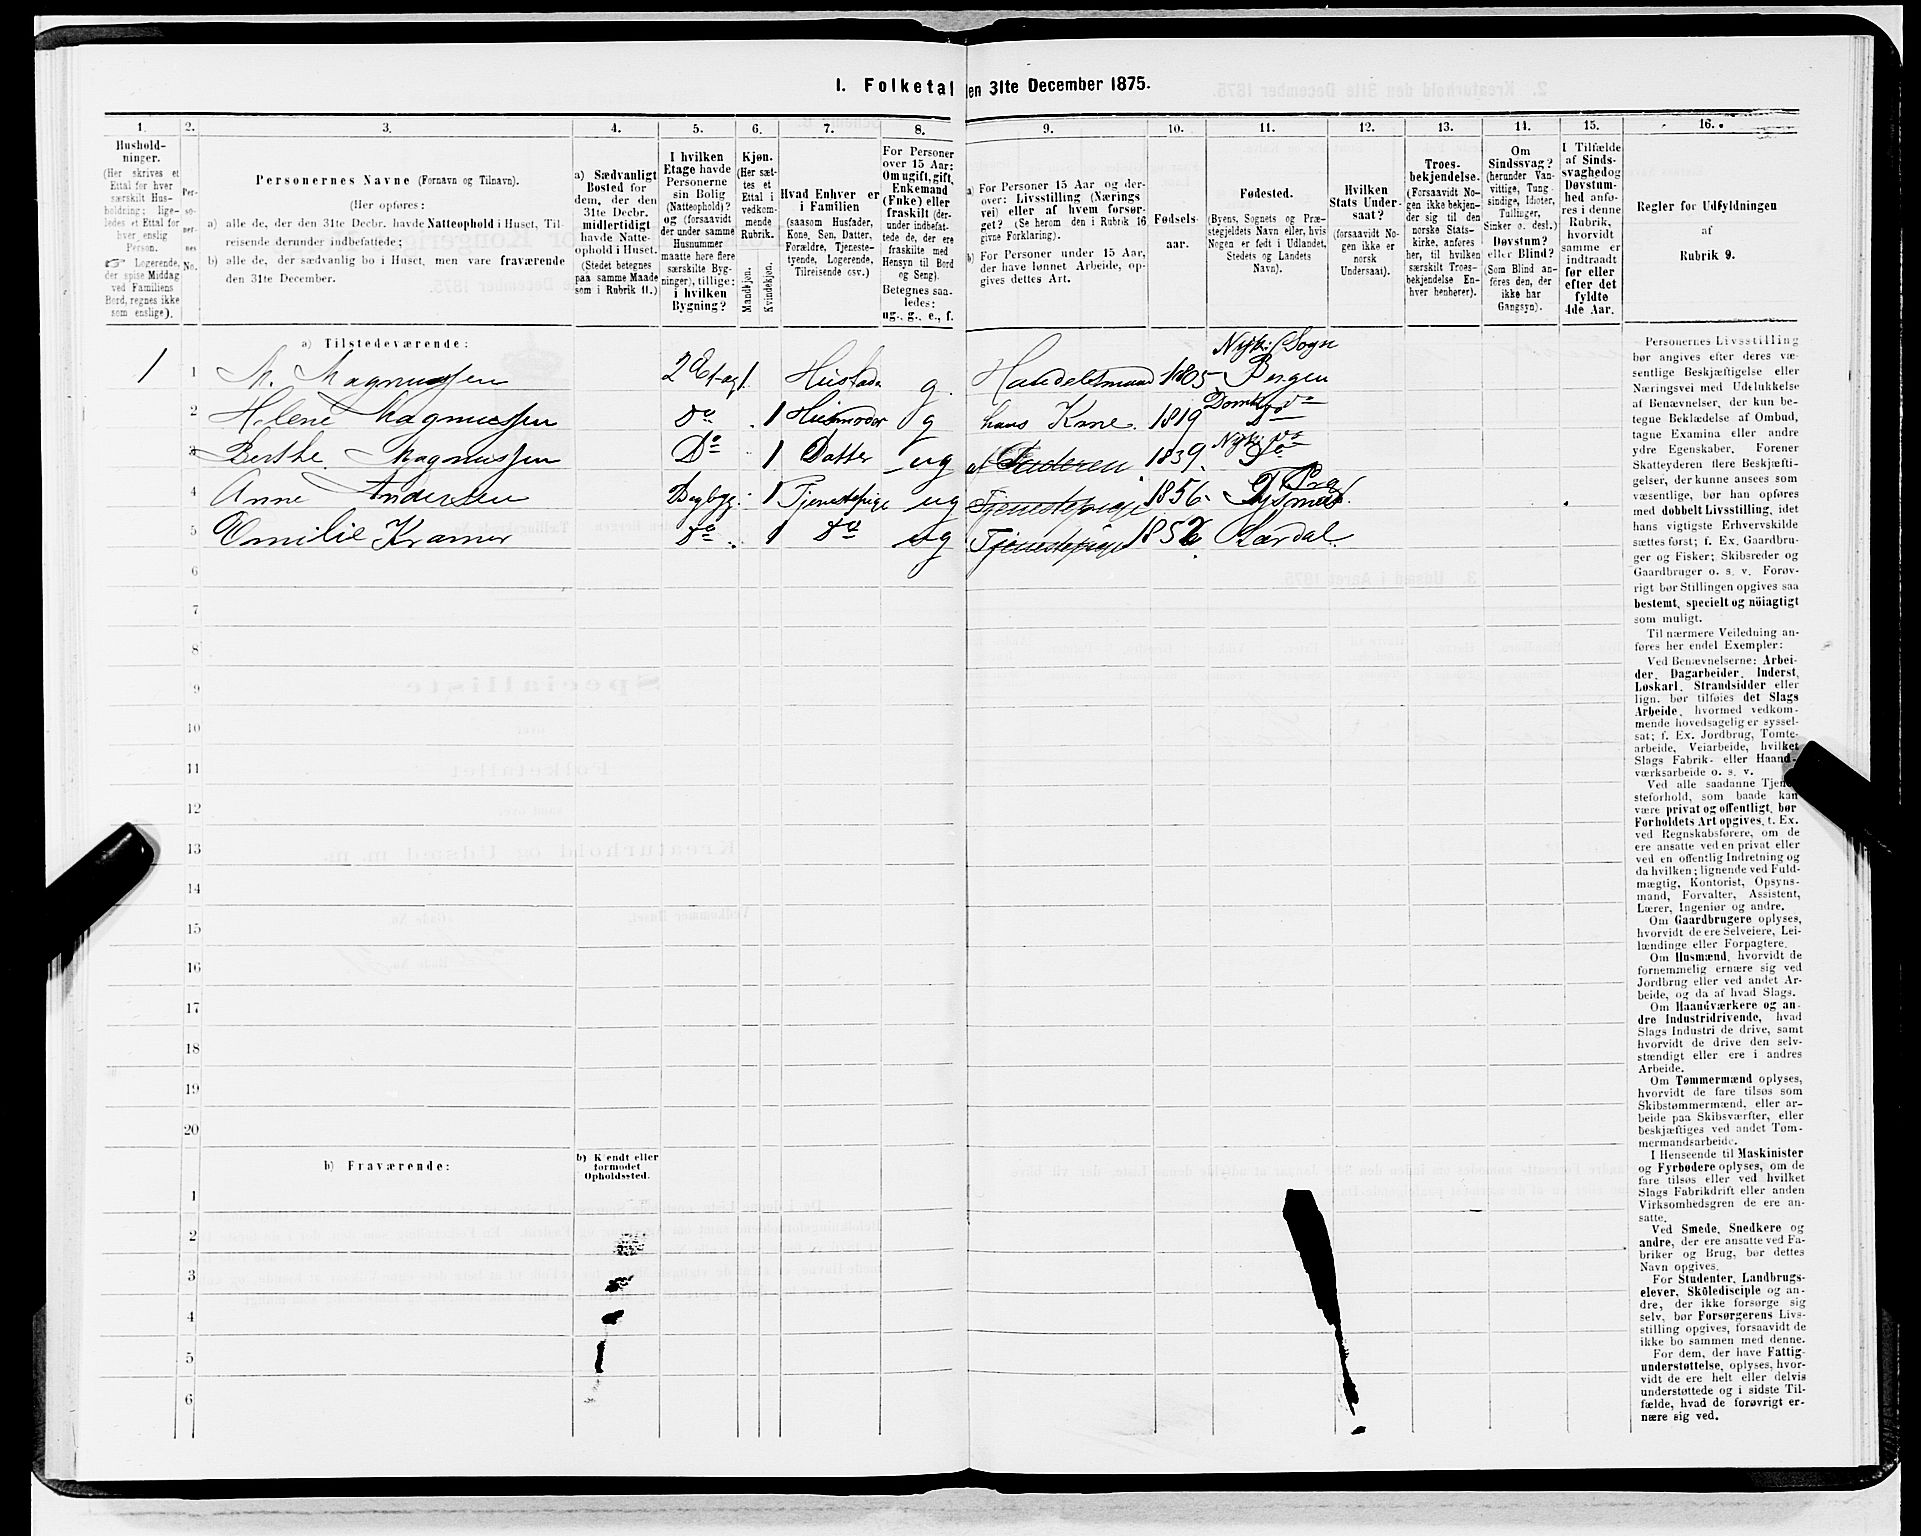 1. Folketal den 31te December 1875.
1. 2. 3. 4. 5. 6. 7. 8. 9. 10. 11. 12. 13. 14. 15. 16.
Hushold-
ninger.
(Her skrives et
Ettal for hver
særskilt Hus-
holdning; lige-
ledes et Ettal for
hver enslig
Person.
☞ Logerende,
der spise Middag
ved Familiens
Bord, regnes ikke
som enslige).
Per-
so-
ner-
nes
No.
Personernes Navne (Fornavn og Tilnavn).
(Her opføres:
a) alle de, der den 31te Decbr. havde Natteophold i Huset, Til-
reisende derunder indbefattede;
b) alle de, der sædvanlig bo i Huset, men vare fraværende
den 31te December.
a) Sædvanligt
Bosted for
dem, der den
31te Decbr.
midlertidigt
havde Natte-
ophold i Huset.
(Stedet betegnes
paa samme Maade
som i Rubrik 11.)
I hvilken
Etage havde
Personerne
sin Bolig
(Natteophold)?
og (forsaavidt
der under samme
Husnummer
maatte høre flere
særskilte Byg-
ninger), tillige:
i hvilken
Bygning?
Kjøn.
(Her sæt-
tes et
Ettal i
vedkom-
mende
Rubrik.
Mandkjøn.
Kvindekjøn.
Hvad Enhver er
i Familien
(saasom Husfader,
Kone, Søn, Datter,
Forældre, Tjeneste-
tyende, Logerende,
Tilreisende osv.)
For Personer
over 15 Aar:
Om ugift, gift,
Enkemand
(Enke) eller
fraskilt (der-
under indbefat-
tede de, der ere
fraskilte med
Hensyn til Bord
og Seng).
Betegnes saa-
ledes:
ug., g., e., f.
a) For Personer 15 Aar og der-
over: Livsstilling (Nærings-
vei) eller af hvem forsør-
get? (Se herom den i Rubrik 16
givne Forklaring).
b) For Personer under 15 Aar,
der have lønnet Arbeide, op-
gives dettes Art.
Fødsels-
aar.
Fødested.
(Byens, Sognets og Præ-
stegjeldets Navn eller, hvis
Nogen er født i Udlandet,
Stedets og Landets
Navn).
Hvilken
Stats Under-
saat?
(forsaavidt No-
gen ikke er
norsk
Undersaat).
Troes-
bekjendelse.
(Forsaavidt No-
gen ikke bekjen-
der sig til den
norske Stats-
kirke, anføres
her, til hvilken
særskilt Troes-
bekjendelse En-
hver henhører).
Om
Sindssvag?
(herunder Van-
vittige, Tung-
sindige, Idioter,
Tullinger,
Sinker o. desl.)
Døvstum?
eller Blind?
(Som Blind an-
føres den, der
ikke har
Gangsyn).
I Tilfælde
af Sinds-
svaghed og
Døvstum-
hed anfø-
res i denne
Rubrik,
hvorvidt
samme er
indtraadt
før eller
efter det
fyldte
4de Aar.
Regler for Udfyldningen
af
Rubrik 9.
a) Tilstedeværende:
1 1 M. Magnussen 2 Etag 1. Husfader g. Handelsmand 1805 Nyk: Sogn Bergen
2 Helene Magnussen do 1 Husmoder g hans Kone. 1819 Domk do
3 Berthe Magnussen Do 1 Datter ug 1839. Nyk: do
4 Anne Andersen Bagbyg. 1 Tjenestepige ug Tjenestepige 1856. Tysnes Prg.
5 Emilie Kramer do 1 do ug Tjenestepige 1852 Lærdal.
6
7
8
9
10
11
12
13
14
15
16
17
18
19
20
b) Fraværende:
b) Kjendt eller
formodet
Opholdssted.
1
2
3
4
5
6
Personernes Livsstilling
bør angives efter deres væ-
sentlige Beskjæftigelse eller
Næringsvei med Udelukkelse
af Benævnelser, der kun be-
tegne Beklædelse af Ombud,
tagne Examina eller andre
ydre Egenskaber. Forener
Skatteyderen flere Beskjæfti-
gelser, der kunne ansees som
væsentlige, bør han opføres
med dobbelt Livsstilling, idet
hans vigtigste Erhvervskilde
sættes først; f. Ex. Gaardbru-
ger og Fisker; Skibsreder og
Gaardbruger o. s. v. Forøv-
rigt bør Stillingen opgives saa
bestemt, specielt og nöiagtigt
som muligt.
Til nærmere Veiledning an-
føres her endel Exempler:
Ved Benævnelserne: Arbei-
der, Dagarbeider, Inderst,
Løskarl, Strandsidder eller
lign. bør tilføies det Slags
Arbeide, hvormed vedkom-
mende hovedsagelig er syssel-
sat; f. Ex. Jordbrug, Tomte-
arbeide, Veiarbeide, hvilket
Slags Fabrik- eller Haand-
værksarbeide o. s. v.
Ved alle saadanne Tjene-
steforhold, som baade kan
være privat og offentligt, bør
Forholdets Art opgives, t. Ex.
ved Regnskabsførere, om de
ere ansatte ved en privat eller
ved en offentlig Indretning og
da hvilken; lignende ved Fuld-
mægtig, Kontorist, Opsyns-
mand, Forvalter, Assistent,
Lærer, Ingeniør og andre.
Om Gaardbrugere oplyses,
hvorvidt de ere Selveiere, Lei-
lændinge eller Forpagtere.
Om Husmænd, hvorvidt de
fornemmelig ernære sig ved
Jordbrug eller ved andet Ar-
beide, og da af hvad Slags.
Om Haandværkere og an-
dre Industridrivende, hvad
Slags Industri de drive, samt
hvorvidt de drive den selv-
stændigt eller ere i andres
Arbeide.
Om Tømmermænd oplyses,
hvorvidt de fare tilsøs som
Skibstømmermænd, eller ar-
beide paa Skibsværfter, eller
beskjæftiges ved andet Tøm-
mermandsarbeide.
I Henseende til Maskinister
og Fyrbødere oplyses, om de
fare tilsøs eller ved hvilket
Slags Fabrikdrift eller anden
Virksomhedsgren de ere an-
satte.
Ved Smede, Snedkere og
andre, der ere ansatte ved Fa-
briker og Brug, bør dettes
Navn opgives.
For Studenter, Landbrugs-
elever, Skoledisciple og an-
dre, der ikke forsørge sig
selv, bør Forsørgerens Livs-
stilling opgives, forsaavidt de
ikke bo sammen med denne.
For dem, der have Fattig-
understøttelse, oplyses, hvor-
vidt de ere helt eller delvis
understøttede og i sidste Til-
fælde, hvad de forøvrigt er-
nære sig ved.